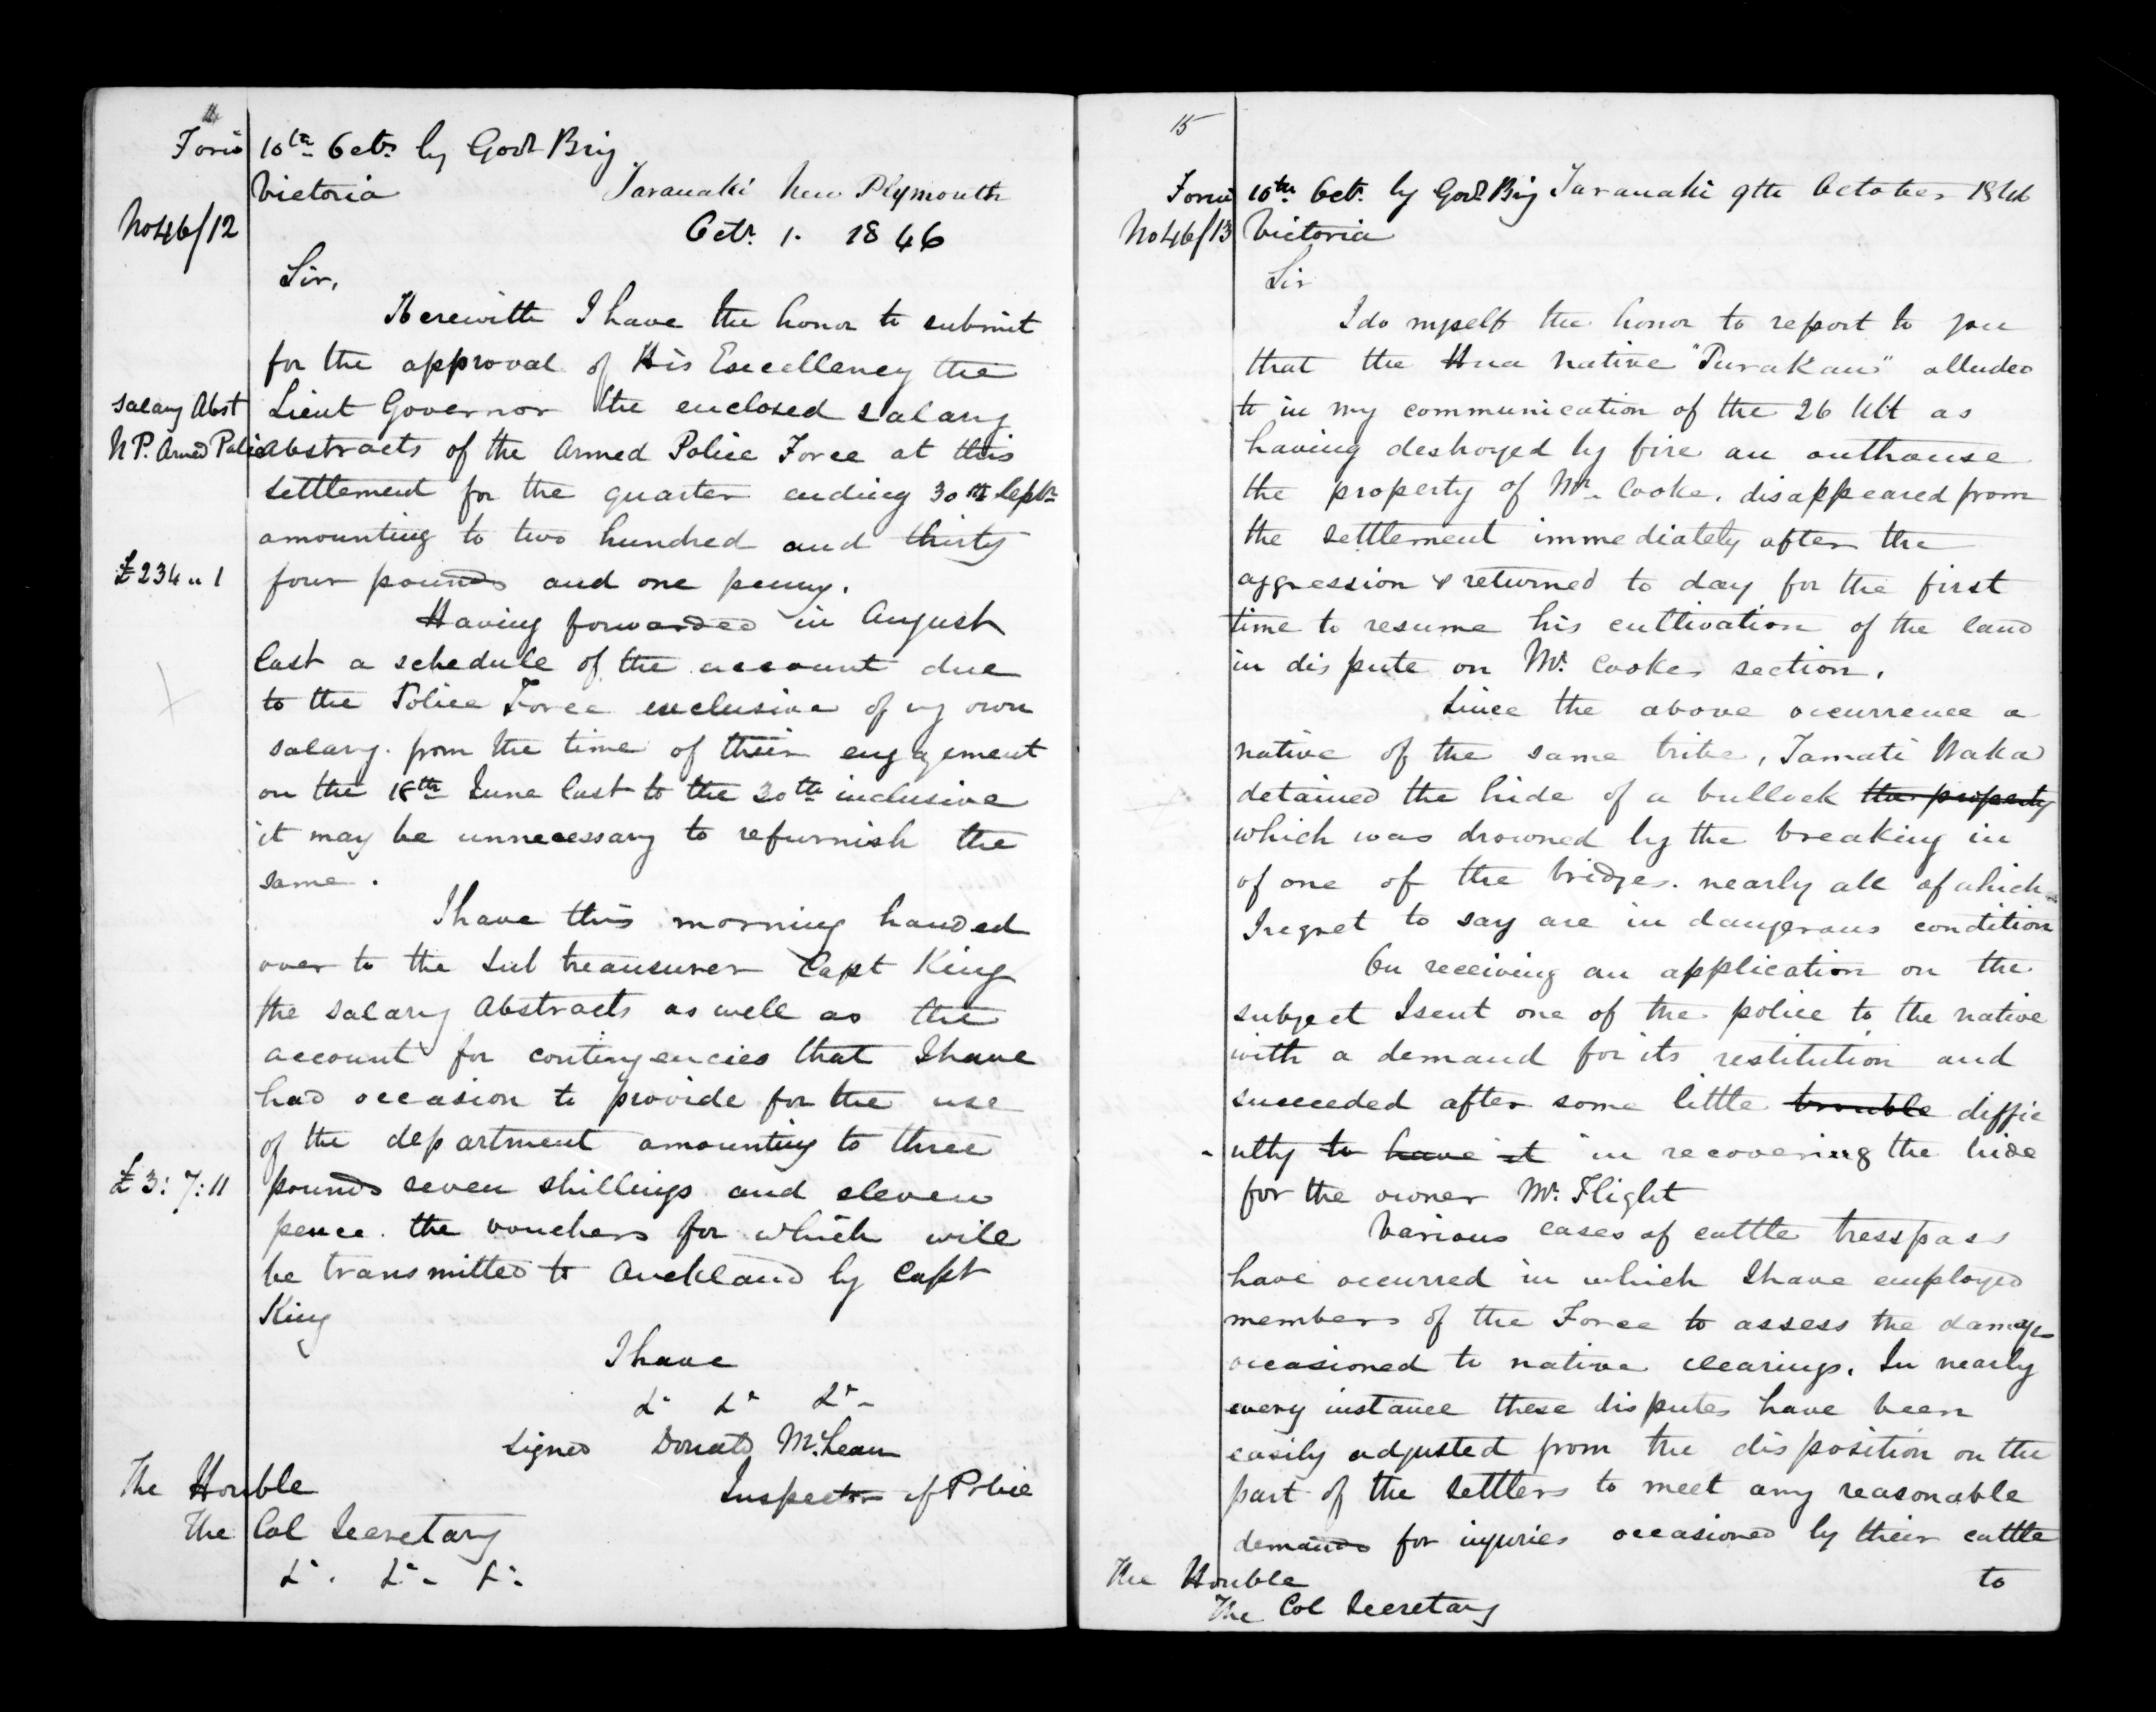 14
Forwd 10th Octr by Govt Brig
Victoria Taranaki New Plymouth
No 46/12 Octr 1. 1846
Sir,
Herewith I have the honor to submit
for the approval of His Excellency the
Salary Abst Lieut Governor the enclosed salary
N P. Armed Police abstracts of the Armed Police Force at this
settlement for the quarter ending 30th Septr
amounting to two hundred and thirty
£234 " 1 four pounds and one penny.
Having forwarded in August
last a schedule of the account due
to the Police Force exclusive of my own
salary. from the time of their engagement
on the 18th June last to the 30th inclusive
it may be unnecessary to refurnish the
same.
I have this morning handed
over to the Sub treausurer Capt King
the salary Abstracts as well as the
account for contingencies that I have
had occasion to provide for the use
of the department amounting to three
£3:7:11 pounds seven shillings and eleven
pence. the vouchers for which will
be transmitted to Auckland by Capt
King
I have
&c &c &c
Signed Donald McLean
The Honble Inspector of Police
The Col Secretary
&c. &c. &c.
15
Forwd 10th Octr. by Govt Brig Taranaki 9th October 1846
No 46/13 Victoria
Sir
I do myself the honor to report to you
that the Hua native "Purakau" alluded
to in my communication of the 26 Ult as
having destroyed by fire an outhouse
the property of Mr. Cooke. disappeared from
the settlement immediately after the
aggression & returned to day for the first
time to resume his cultivation of the land
in dispute on Mr. Cookes section.
Since the above occurrence a
native of the same tribe, Tamati Waka
detained the hide of a bullock the property
which was drowned by the breaking in
of one of the bridges. nearly all of which
I regret to say are in dangerous condition
On receiving an application on the
subject I sent one of the police to the native
with a demand for its restitution and
succeeded after some little trouble diffic
-ulty to have it in recovering the hide
for the owner Mr. Flight
Various cases of cattle tresspass
have occurred in which I have employed
members of the Force to assess the damage
occasioned to native clearings. In nearly
every instance these disputes have been
easily adjusted from the disposition on the
part of the Settlers to meet any reasonable
demands for injuries occasioned by their cattle
The Honble to
The Col Secretary